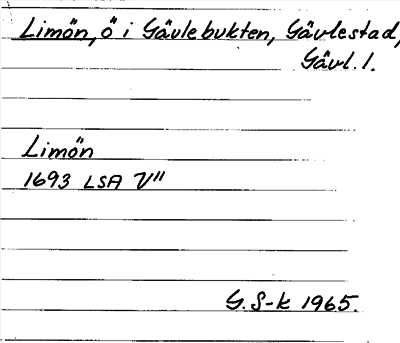 Limön, ö i Gävlebukten, Gävlestad,
Gävl. l.
Limön
1693 LSA V"
G. S-k 1965.